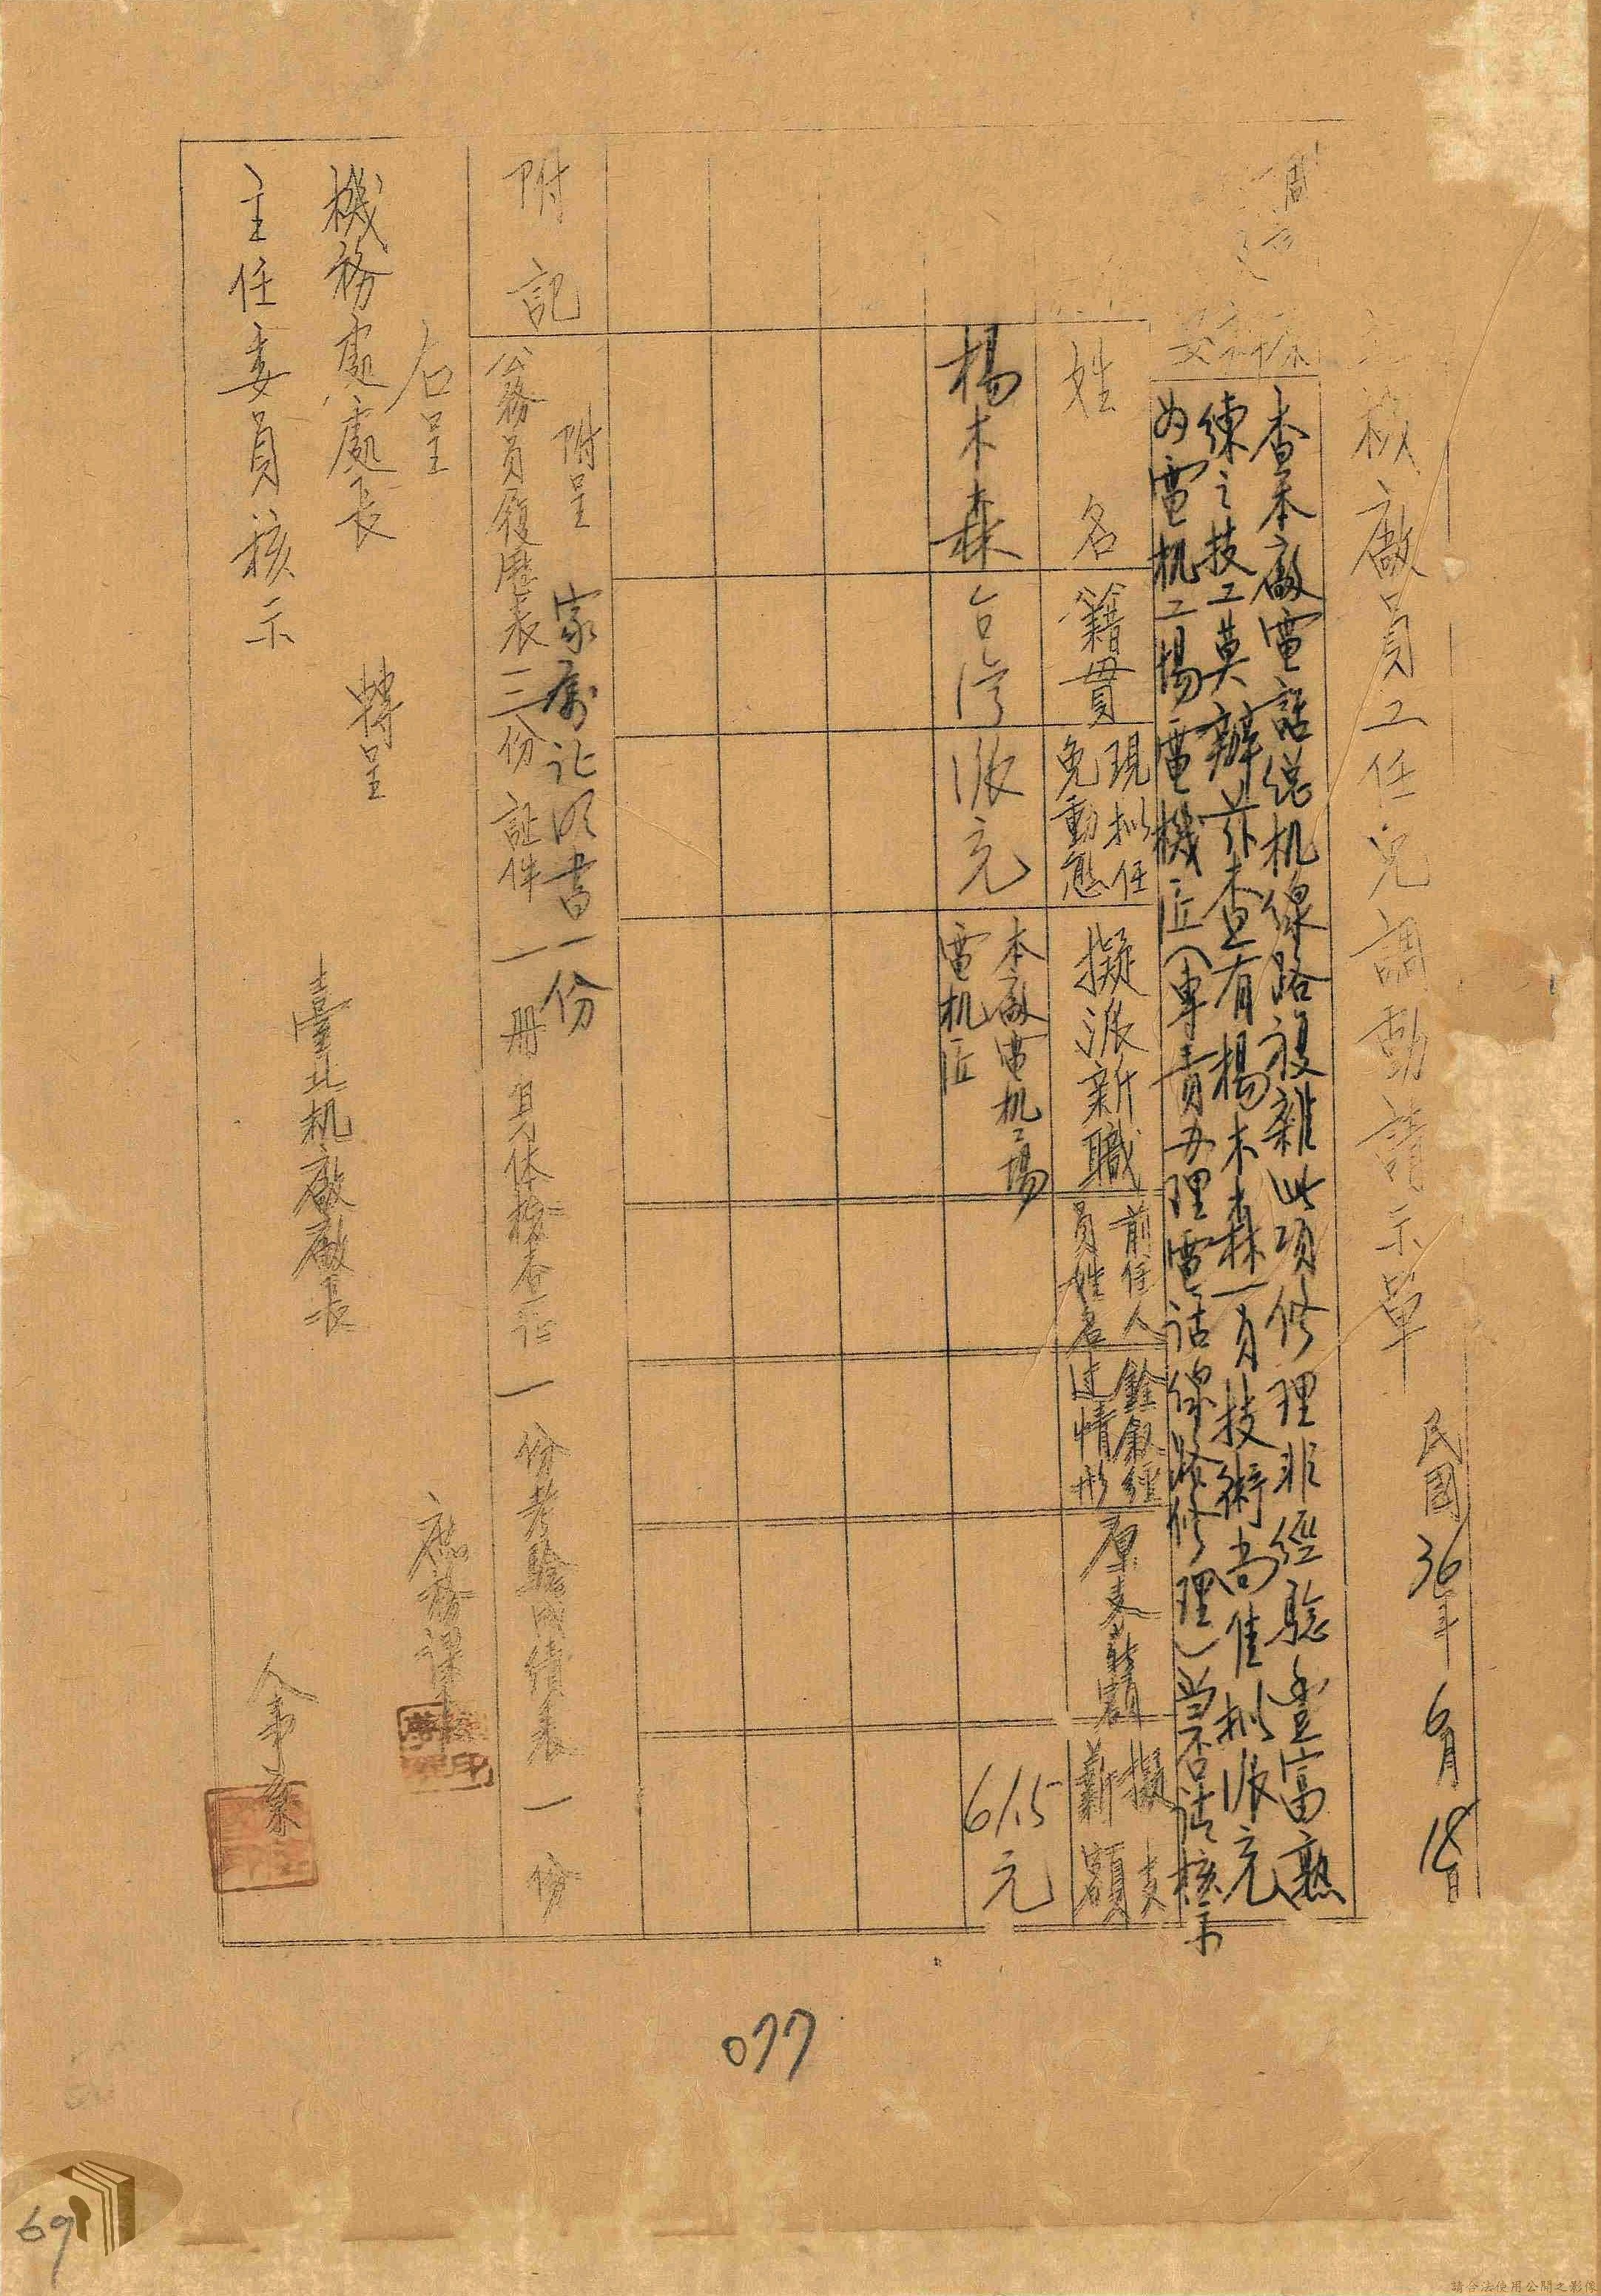 北機廠員工任免調動請示單
民國36年6月18日
查本廠電話總机線路複雜此項修理非經驗豐富熟
練之技工莫辦茲查有楊木森一員技術尚佳拟派充
為電机工場電機匠(專責办理電話線路修理)当否請核示
姓名
籍貫
現拟任
免動態
擬派新職
前任人
員姓名
銓敘經
過情形
原支薪額
擬支
薪額
楊木森
台湾
派充
本廠電机工場
電机匠
615元
附記
附呈 家屬証明書一份
公務員履歷表三份 証件一冊 身体檢查証一份 考驗成績表一份
右呈
機務處處長 轉呈
主任委員核示
臺北机廠廠長
077
69
請合法使用公開之影像